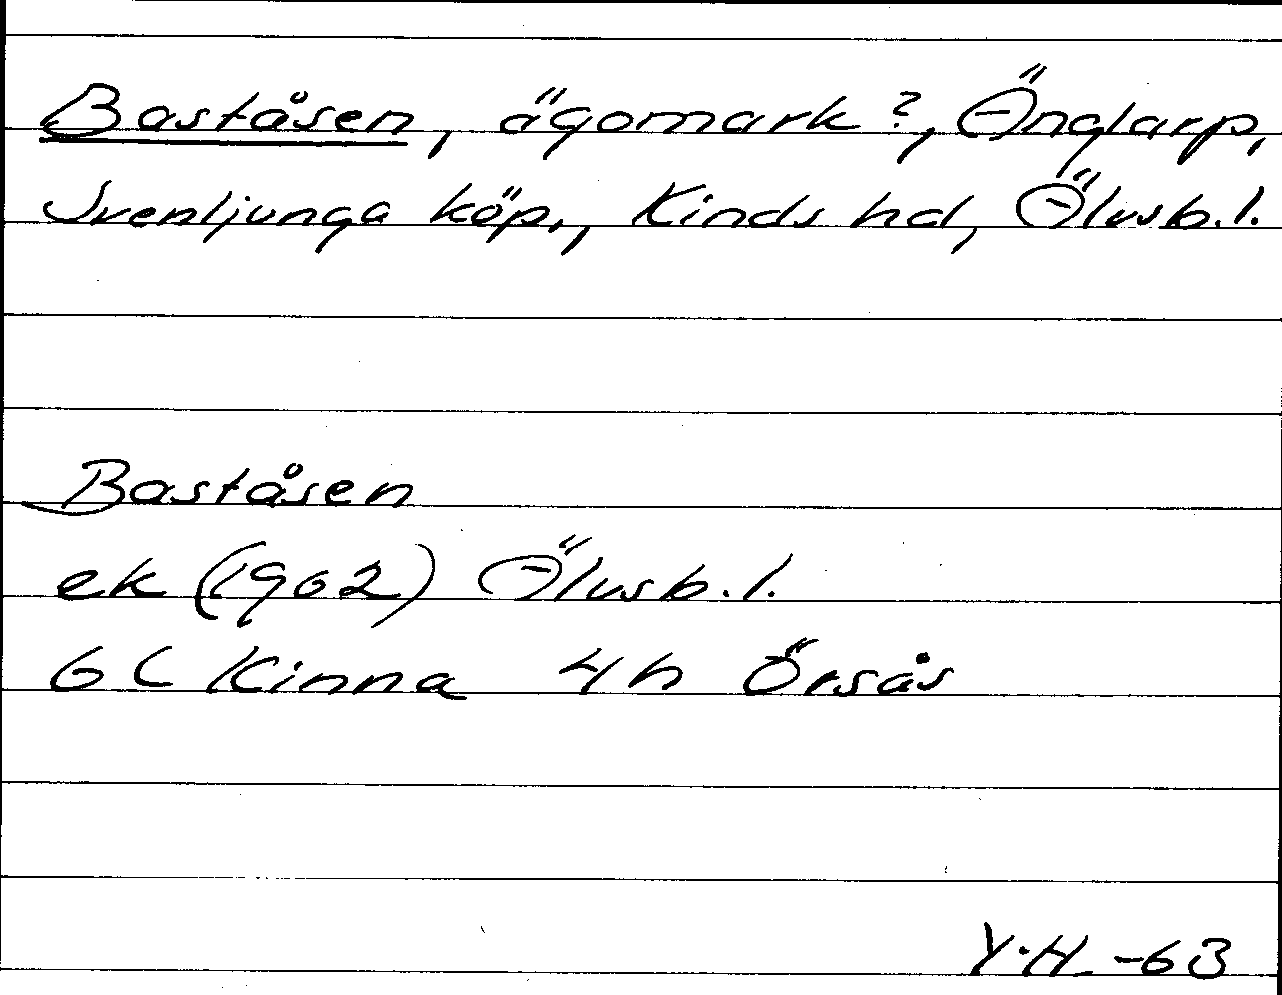 Baståsen, ägomark?, Änglarp,
Svenljunga köp., Kinds hd, Älvsb.l.
Baståsen
ek (1962) Älvsb.l.
6C Kinna 4h Örsås
Y.H. -63